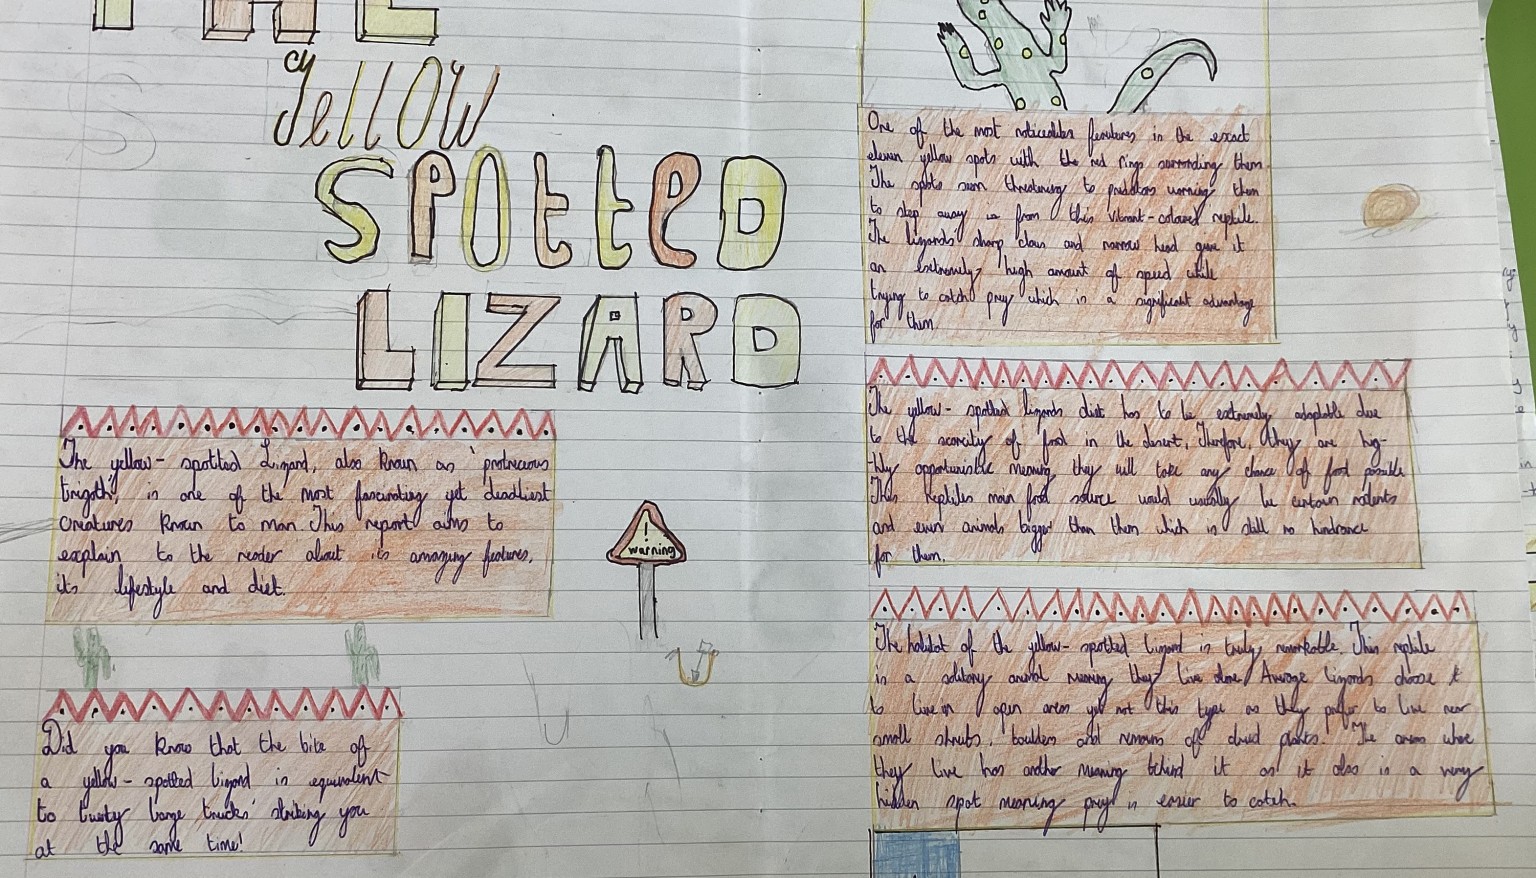 THE
Yellow
SPOtteD
LIZARD
The yellow- spotted Lizard, also known as 'protrecious
trigoth', is one of the most fascinating yet deadliest
creatures known to man. This report aims to
explain to the reader about its amazing features,
its lifestyle and diet.
!
warning
Did you know that the bite of
a yellow- spotted lizard is equivalent
to twenty large trucks striking you
at the same time!
One of the most noticeables features is the exact
eleven yellow spots with the red rings surronding them.
The spots seem threatening to predators warning them
to step away from this vibrant-coloured reptile.
The lizards' sharp claws and narrow head gave it
an extremely high amount of speed while
trying to catch prey which is a significant advantage
for them.
The yellow- spotted lizards diet has to be extremely adaptable due
to the scarcity of food in the desert. Therefore, they are hig-
-hly opportunistic meaning they will take any chance of food possible
This reptiles main food source would usually be certain rodents
and even animals bigger than them which is still no hindrance
for them.
The habitat of the yellow- spotted lizard is truly remarkable. This reptile
is a solitary animal meaning they live alone. Average lizards choose t
to live in open areas yet not this type as they prefer to live near
small shrubs, boulders and remains of dead plants. The areas where
they live has another meaning behind it as it also is a very
hidden spot meaning prey is easier to catch.